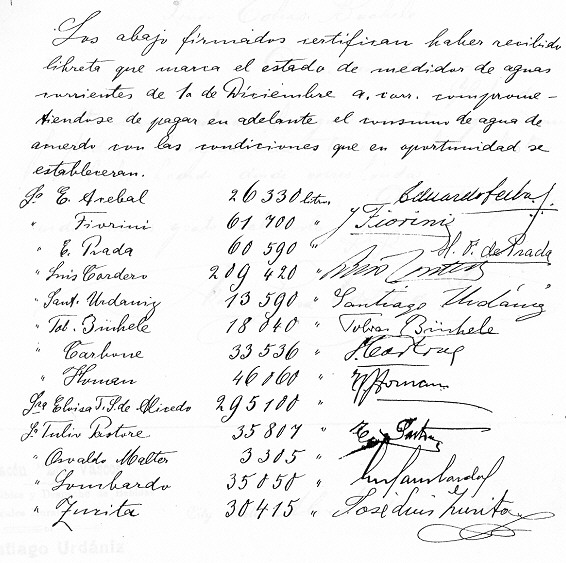 Los abajo firmados certifican haber recibido
libreta que marca el estado de medidor de aguas
corrientes de 1o de Diciembre a. corr. comprome-
tiendose de pagar en adelante el consumo de agua de
acuerdo con las condiciones que en oportunidad se
estableceran.
Sr E. Arebal 26330 litr. Eduardo
" Fiorini 61700 " J Fiorini
" E. Prada 60590 " M. P. de Prada
" Luis Cordero 209420 "
" Sant. Urdaniz 13590 " Santiago Urdániz
" Tob. Büchele 18040 " Tobias Büchele
" Carbone 33536 "
" Homan 46060 " Homan
Sra Eloisa T. S. de Olivedo 295100 "
Sr Tulio Pastore 35807 "
" Osvaldo Malter 3305 "
" Lombardo 35050 " Lombardo
" Zurita 30415 " José Luis Zurita
tiago Urdániz